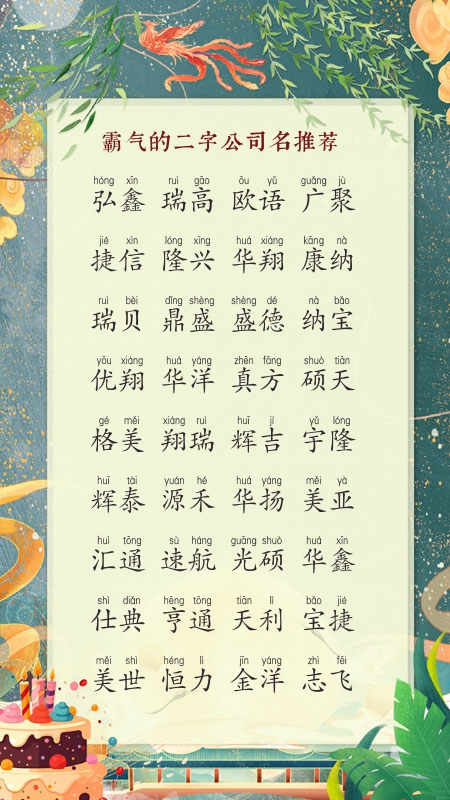 霸气的二字公司名推荐
hóng xīn ruì gāo ōu yǔ guǎng jù
弘鑫 瑞高 欧语 广聚
jié xìn lóng xīng huá xiáng kāng nà
捷信 隆兴 华翔 康纳
ruì bèi dǐng shèng shèng dé nà bǎo
瑞贝 鼎盛 盛德 纳宝
yōu xiáng huá yáng zhēn fāng shuò tiān
优翔 华洋 真方 硕天
gé měi xiáng ruì huī jí yǔ lóng
格美 翔瑞 辉吉 宇隆
huī tài yuán hé huá yáng měi yà
辉泰 源禾 华扬 美亚
huì tōng sù háng guāng shuò huá xīn
汇通 速航 光硕 华鑫
shì diǎn hēng tōng tiān lì bǎo jié
仕典 亨通 天利 宝捷
měi shì héng lì jīn yáng zhì fēi
美世 恒力 金洋 志飞